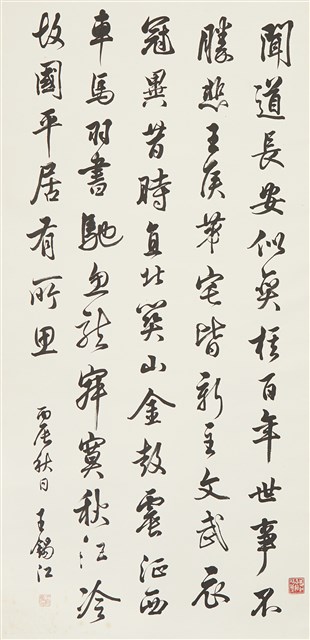 聞道長安似奕棋百年世事不
勝悲王侯第宅皆新主文武衣
冠異昔時直北關山金鼓震征西
車馬羽書馳魚龍寂寞秋江冷
故國平居有所思
丙辰秋日 王錫江